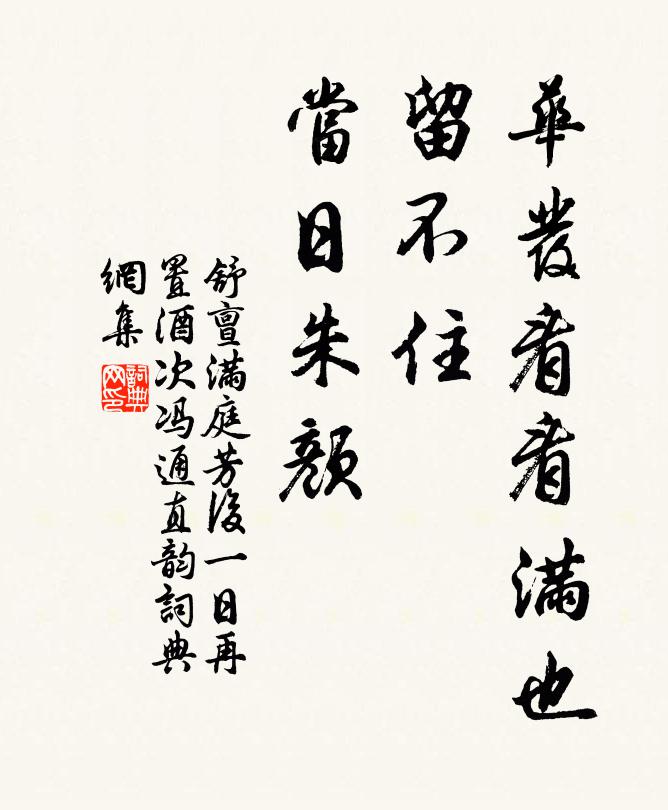 華發看看滿也
留不住
當日朱顏
舒亶滿庭芳後一日再
置酒次馮通直韵詞典
網集
詞典
网印